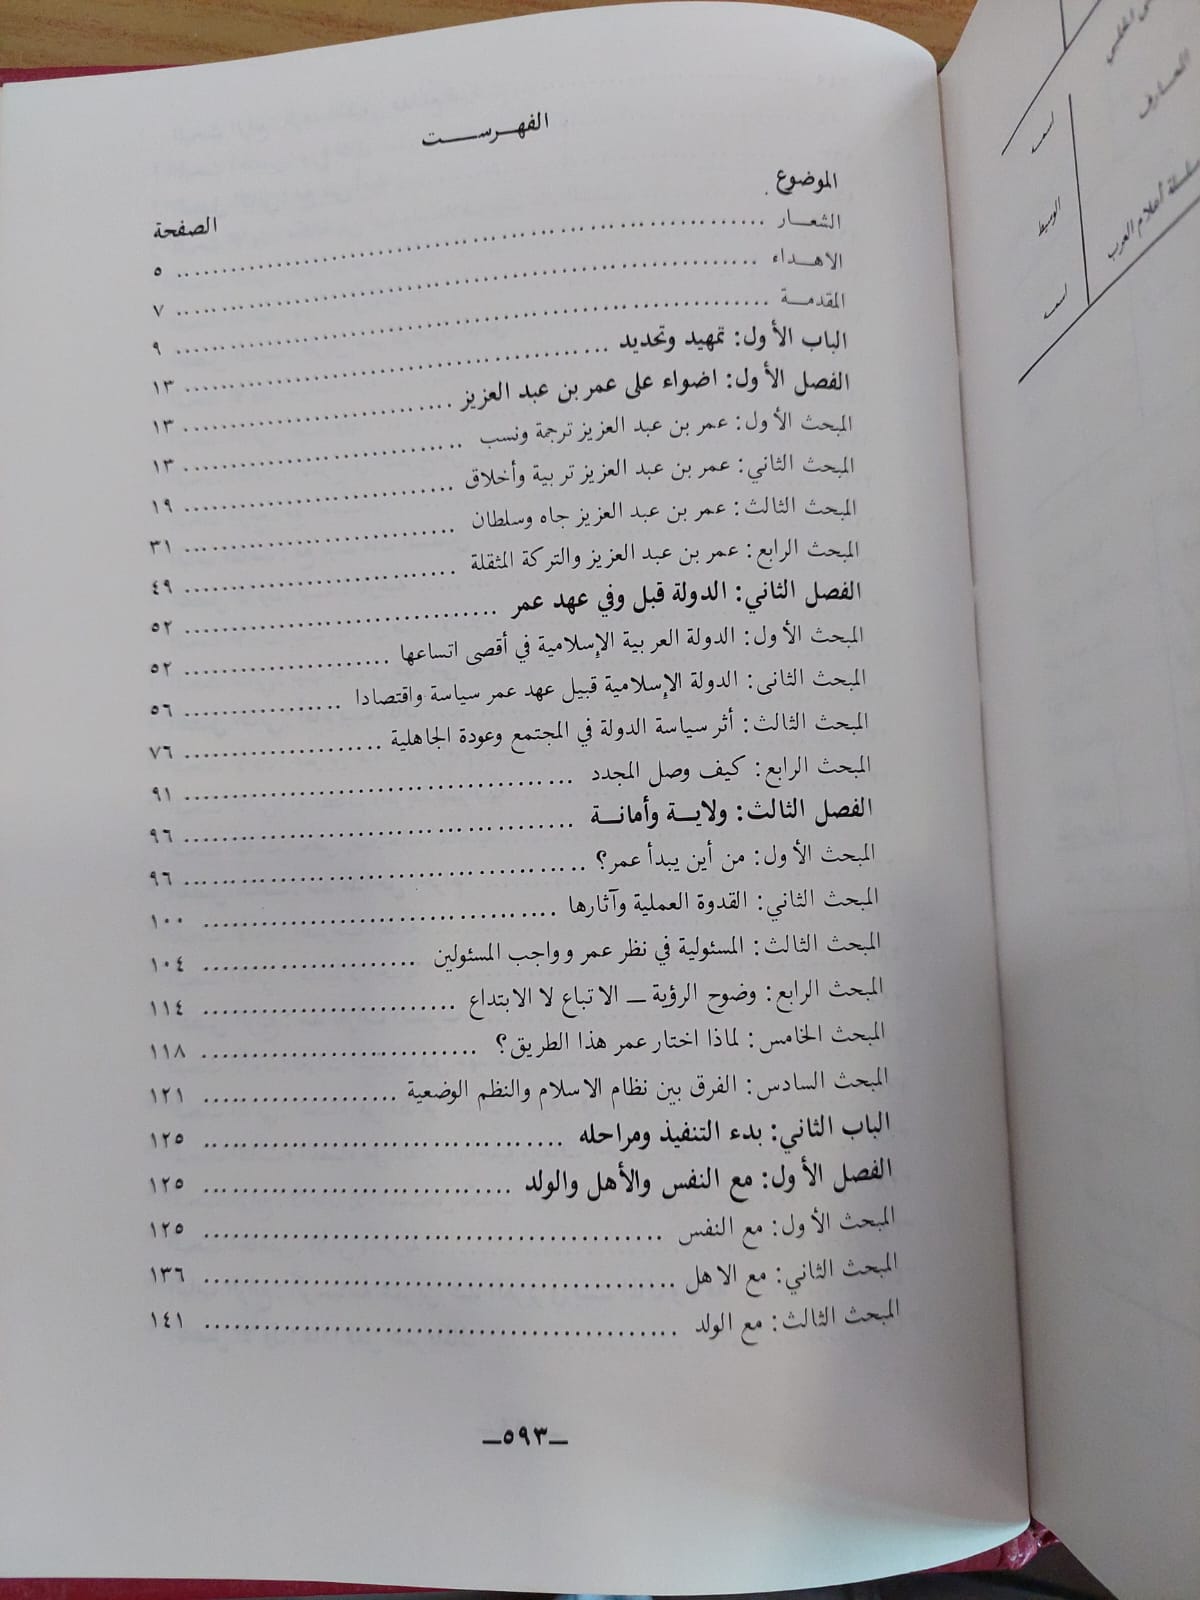 الفهرست
الموضوع
الصفحة
الشعار ........ ٥
الاهداء ........ ٧
المقدمة ........ ٩
الباب الأول: تمهيد وتحديد ........ ١٣
الفصل الأول: اضواء على عمر بن عبد العزيز ........ ١٣
المبحث الأول: عمر بن عبد العزيز ترجمة ونسب ........ ١٣
المبحث الثاني: عمر بن عبد العزيز تربية وأخلاق ........ ١٩
المبحث الثالث: عمر بن عبد العزيز جاه وسلطان ........ ٣١
المبحث الرابع: عمر بن عبد العزيز والتركة المثقلة ........ ٤٩
الفصل الثاني: الدولة قبل وفي عهد عمر ........ ٥٢
المبحث الأول: الدولة العربية الإسلامية في أقصى اتساعها ........ ٥٢
المبحث الثانى: الدولة الإسلامية قبيل عهد عمر سياسة واقتصادا ........ ٥٦
المبحث الثالث: أثر سياسة الدولة في المجتمع وعودة الجاهلية ........ ٧٦
المبحث الرابع: كيف وصل المجدد ........ ٩١
الفصل الثالث: ولاية وأمانة ........ ٩٦
المبحث الأول: من أين يبدأ عمر؟ ........ ٩٦
المبحث الثاني: القدوة العملية وآثارها ........ ١٠٠
المبحث الثالث: المسئولية في نظر عمر وواجب المسئولين ........ ١٠٤
المبحث الرابع: وضوح الرؤية ــ الاتباع لا الابتداع ........ ١١٤
المبحث الخامس: لماذا اختار عمر هذا الطريق؟ ........ ١١٨
المبحث السادس: الفرق بين نظام الاسلام والنظم الوضعية ........ ١٢١
الباب الثاني: بدء التنفيذ ومراحله ........ ١٢٥
الفصل الأول: مع النفس والأهل والولد ........ ١٢٥
المبحث الأول: مع النفس ........ ١٢٥
المبحث الثاني: مع الاهل ........ ١٣٦
المبحث الثالث: مع الولد ........ ١٤١
ــ٥٩٣ــ
الوسيط
سلسلة أعلام العرب